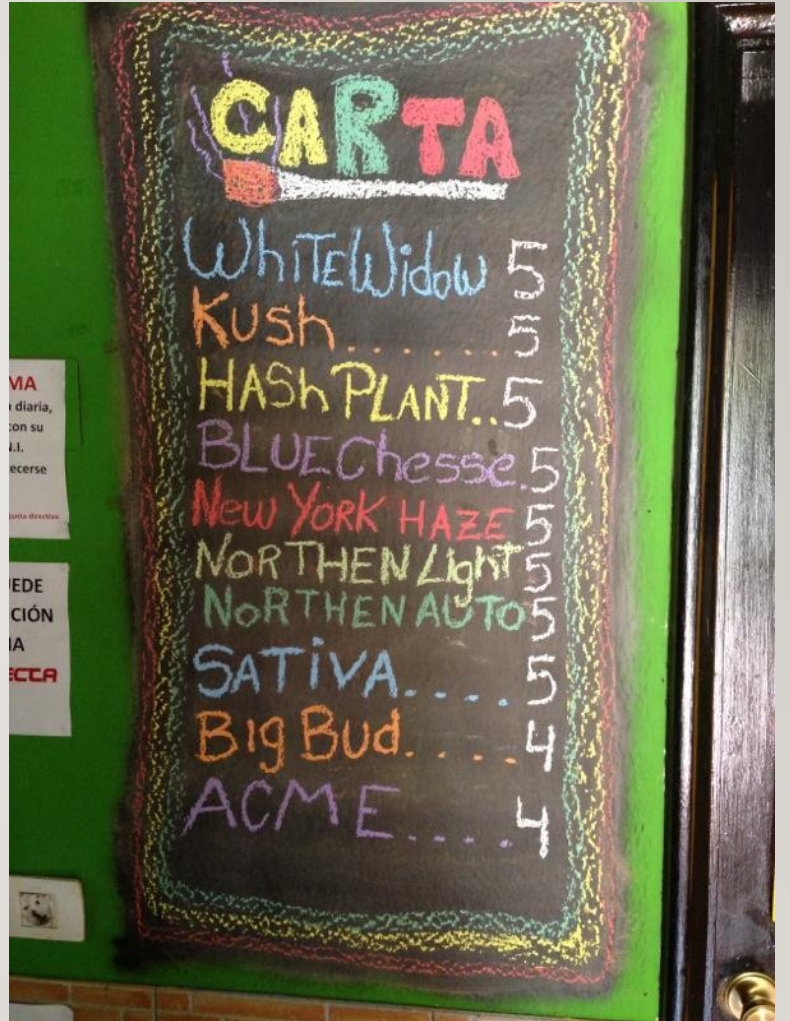 CARTA
WhiTEWidow 5
Kush....... 5
HAShPLANT..5
BLUEChesse.5
New YORK HAZE 5
NORTHEN Light 5
NORTHEN AUTO 5
SATiVA.... 5
Big Bud..... 4
ACME.... 4
MA
diaria,
con su
N.I.
ecerse
junta directiva
UEDE
CIÓN
IA
ECTA